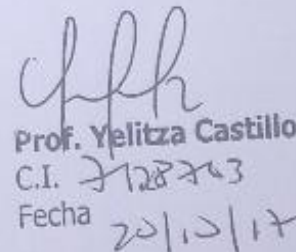 Prof. Yelitza Castillo
C.I. 7128743
Fecha 20/10/17